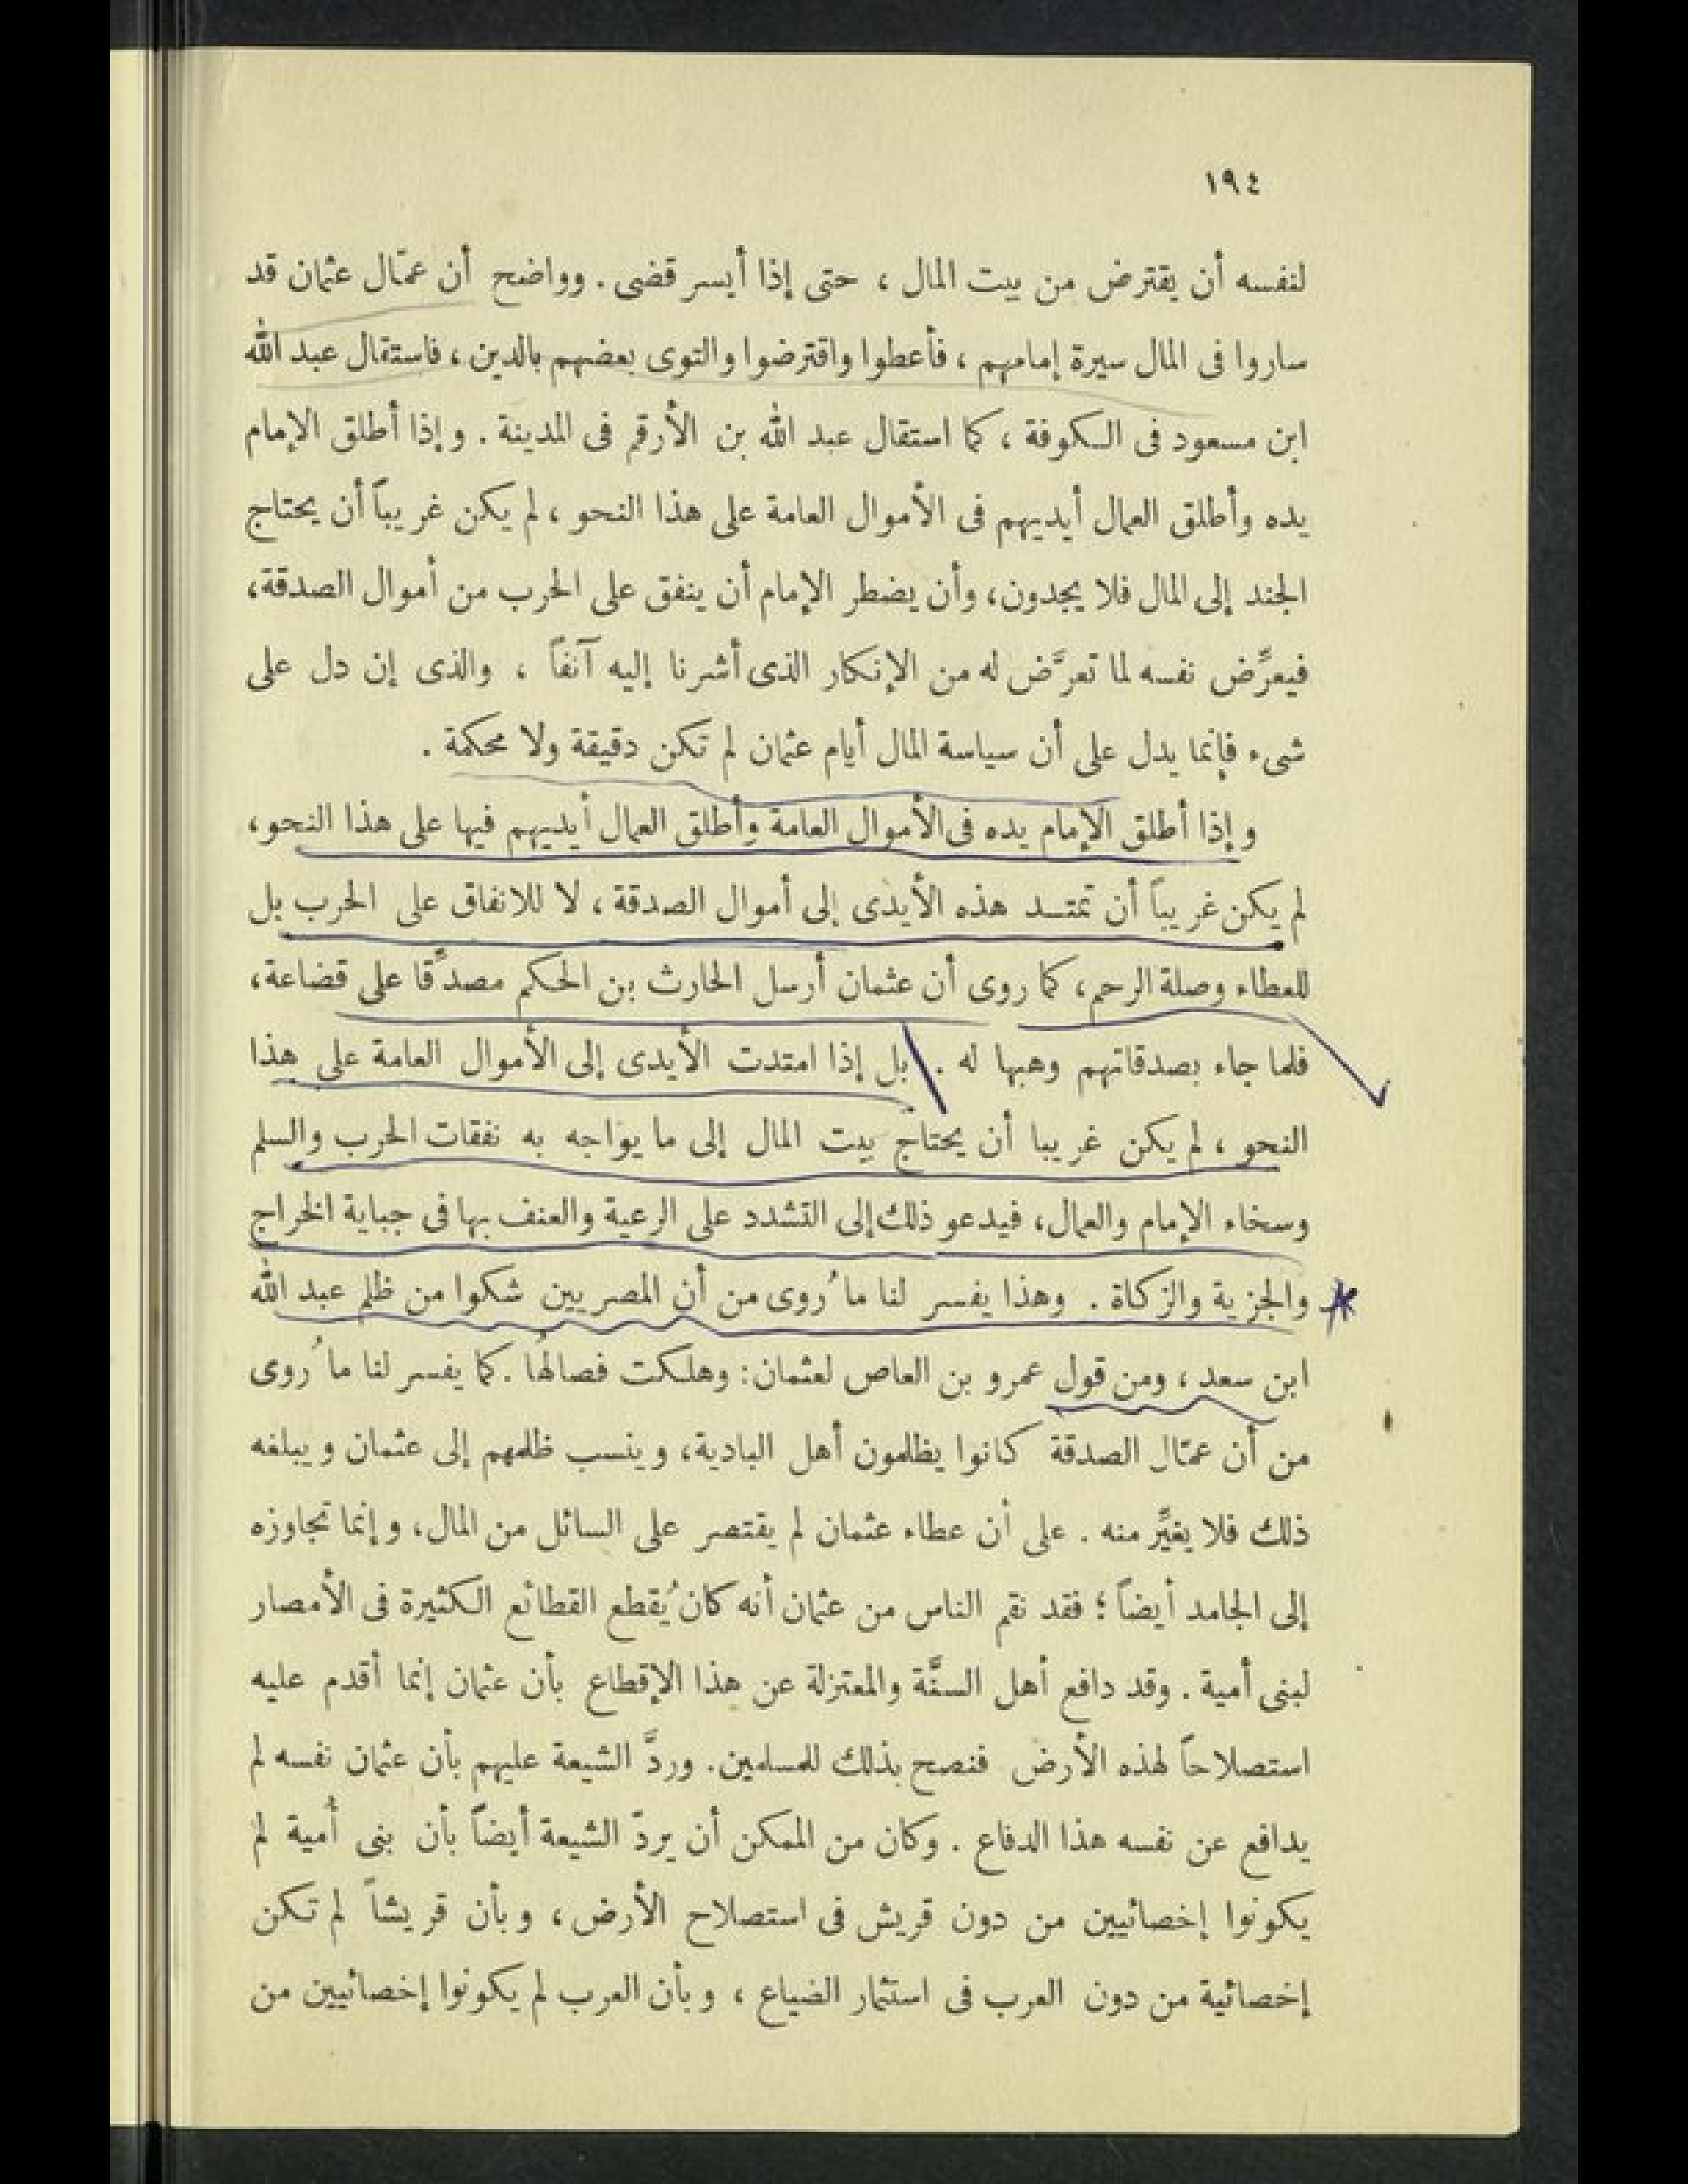 ١٩٤
لنفسه أن يقترض من بيت المال ، حتى إذا أيسر قضى . وواضح أن عمّال عثمان قد
ساروا فى المال سيرة إمامهم ، فأعطوا واقترضوا والتوى بعضهم بالدين ، فاستقال عبد الله
ابن مسعود فى الكوفة ، كما استقال عبد الله بن الأرقم فى المدينة . وإذا أطلق الإمام
يده وأطلق العمال أيديهم فى الأموال العامة على هذا النحو ، لم يكن غريباً أن يحتاج
الجند إلى المال فلا يجدون، وأن يضطر الإمام أن ينفق على الحرب من أموال الصدقة،
فيعرِّض نفسه لما تعرَّض له من الإنكار الذى أشرنا إليه آنفاً ، والذى إن دل على
شىء فإنما يدل على أن سياسة المال أيام عثمان لم تكن دقيقة ولا محكمة .
وإذا أطلق الإمام يده فى الأموال العامة وأطلق العمال أيديهم فيها على هذا النحو،
لم يكن غريباً أن تمتد هذه الأيدى إلى أموال الصدقة ، لا للانفاق على الحرب بل
للعطاء وصلة الرحم، كما روى أن عثمان أرسل الحارث بن الحكم مصدِّقا على قضاعة،
فلما جاء بصدقاتهم وهبها له . بل إذا امتدت الأيدى إلى الأموال العامة على هذا
النحو ، لم يكن غريبا أن يحتاج بيت المال إلى ما يواجه به نفقات الحرب والسلم
وسخاء الإمام والعمال، فيدعو ذلك إلى التشدد على الرعية والعنف بها فى جباية الخراج
والجزية والزكاة . وهذا يفسر لنا ما رُوى من أن المصريين شكوا من ظلم عبد الله
ابن سعد ، ومن قول عمرو بن العاص لعثمان: وهلكت فصالُها . كما يفسر لنا ما رُوى
من أن عمّال الصدقة كانوا يظلمون أهل البادية، وينسب ظلمهم إلى عثمان ويبلغه
ذلك فلا يغيِّر منه . على أن عطاء عثمان لم يقتصر على السائل من المال، وإنما تجاوزه
إلى الجامد أيضاً ؛ فقد نقم الناس من عثمان أنه كان يُقطع القطائع الكثيرة فى الأمصار
لبنى أمية . وقد دافع أهل السنَّة والمعتزلة عن هذا الإقطاع بأن عثمان إنما أقدم عليه
استصلاحاً لهذه الأرض فنصح بذلك للمسلمين. وردَّ الشيعة عليهم بأن عثمان نفسه لم
يدافع عن نفسه هذا الدفاع . وكان من الممكن أن يردّ الشيعة أيضاً بأن بنى أُمية لم
يكونوا إخصائيين من دون قريش فى استصلاح الأرض ، وبأن قريشاً لم تكن
إخصائية من دون العرب فى استثمار الضياع ، وبأن العرب لم يكونوا إخصائيين من